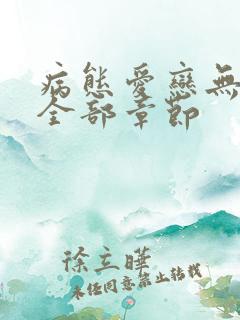 病態愛戀無
全部章節
徐立曄
未经同意禁止转载